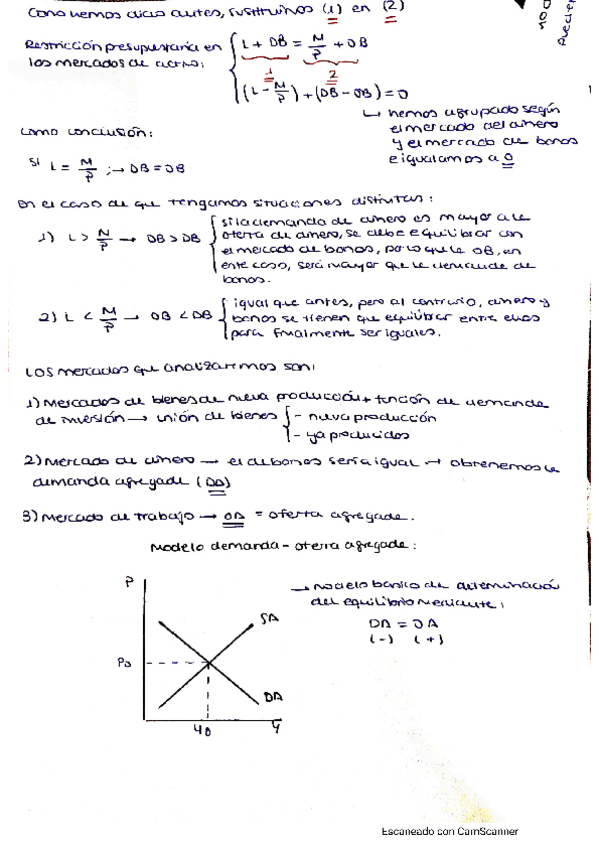 Como hemos dicho antes, sustituimos (1) en (2)
Restricción presupuestaria en
los mercados de activos:
L + DB = M/P + OB
1 2
(L - M/P) + (DB - OB) = 0
↳ hemos agrupado según
el mercado del dinero
y el mercado de bonos
e igualamos a 0
Como conclusión:
Si L = M/P ; → DB = OB
En el caso de que tengamos situaciones distintas:
1) L > M/P → OB > DB
si la demanda de dinero es mayor a la
oferta de dinero, se debe equilibrar con
el mercado de bonos, por lo que la OB, en
este caso, será mayor que la demanda de
bonos.
2) L < M/P → OB < DB
igual que antes, pero al contrario, dinero y
bonos se tienen que equilibrar entre ellos
para finalmente ser iguales.
Los mercados que analizaremos son:
1) Mercados de bienes de nueva producción + función de demanda
de inversión → unión de bienes
- nueva producción
- ya producidos
2) Mercado de dinero → el de bonos sería igual → obtenemos la
demanda agregada (DA)
3) Mercado de trabajo → OA = oferta agregada.
Modelo demanda - oferta agregada:
→ Modelo básico de determinación
del equilibrio mediante:
DA = OA
(-) (+)
P
SA
P0
DA
Y0
Y
Escaneado con CamScanner